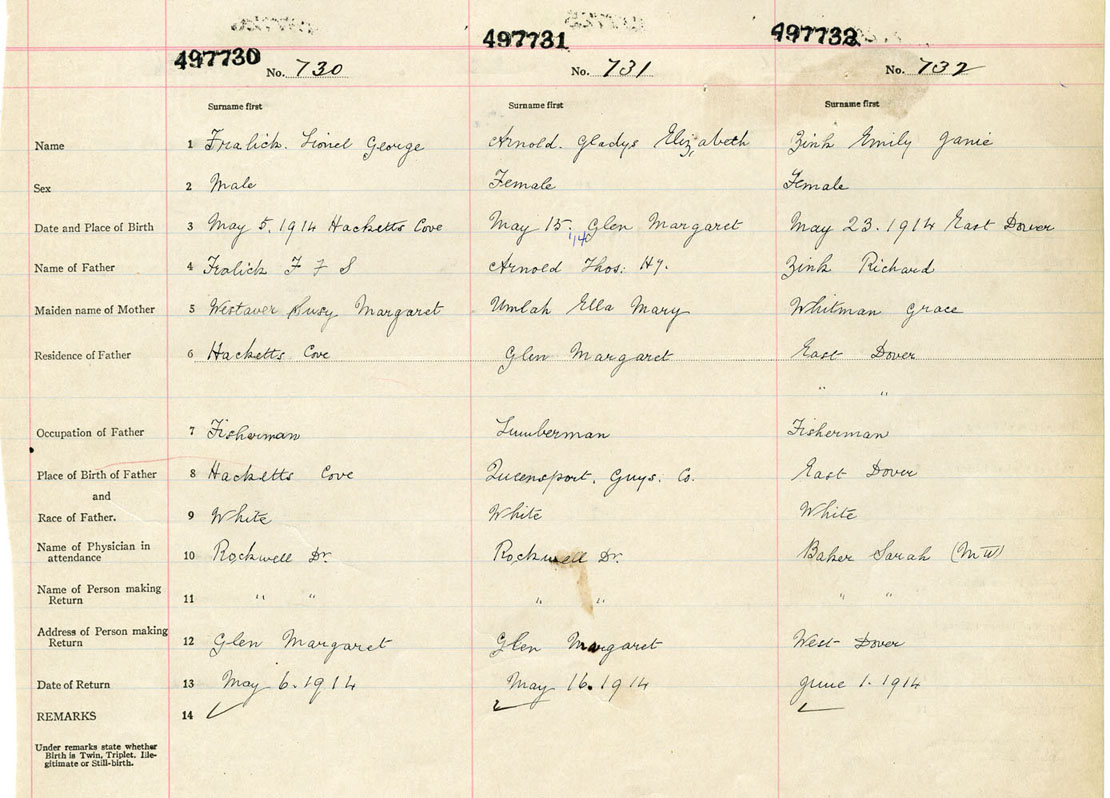 497730 497731 497732
No. 730 No. 731 No. 732
Surname first Surname first Surname first
Name 1 Fralick. Lionel George Arnold. Gladys Elizabeth Zink Emily Janie
Sex 2 Male Female Female
Date and Place of Birth 3 May 5. 1914 Hacketts Cove May 15. 1914 Glen Margaret May 23. 1914 East Dover
Name of Father 4 Fralick F F S Arnold Thos. Hy. Zink Richard
Maiden name of Mother 5 Westaver Susy Margaret Umlah Ella Mary Whitman Grace
Residence of Father 6 Hacketts Cove Glen Margaret East Dover
" "
Occupation of Father 7 Fisherman Lumberman Fisherman
Place of Birth of Father 8 Hacketts Cove Queensport. Guys. Co. East Dover
and
Race of Father. 9 White White White
Name of Physician in
attendance 10 Rockwell Dr. Rockwell Dr. Baker Sarah (MW)
Name of Person making
Return 11 " " " " " "
Address of Person making
Return 12 Glen Margaret Glen Margaret West Dover
Date of Return 13 May 6. 1914 May 16. 1914 June 1. 1914
REMARKS 14
Under remarks state whether
Birth is Twin, Triplet, Ille-
gitimate or Still-birth.